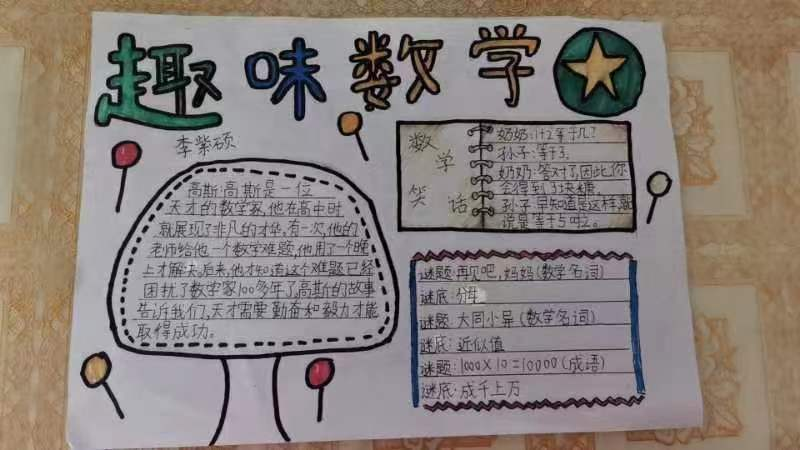 趣味数学
李紫硕
高斯:高斯是一位
天才的数学家,他在高中时
就展现了非凡的才华,有一次,他的
老师给他一个数学难题,他用了一个晚
上才解决,后来,他才知道这个难题已经
困扰了数学家100多年了,高斯的故事
告诉我们,天才需要勤奋和毅力才能
取得成功。
数学
笑话
奶奶:1+2等于几?
孙子:等于3.
奶奶:答对了,因此,你
会得到3块糖.
孙子:早知道是这样,就
说是等于5啦.
谜题:再见吧,妈妈(数学名词)
谜底:分母
谜题:大同小异(数学名词)
谜底:近似值
谜题:1000×10=10000(成语)
谜底:成千上万